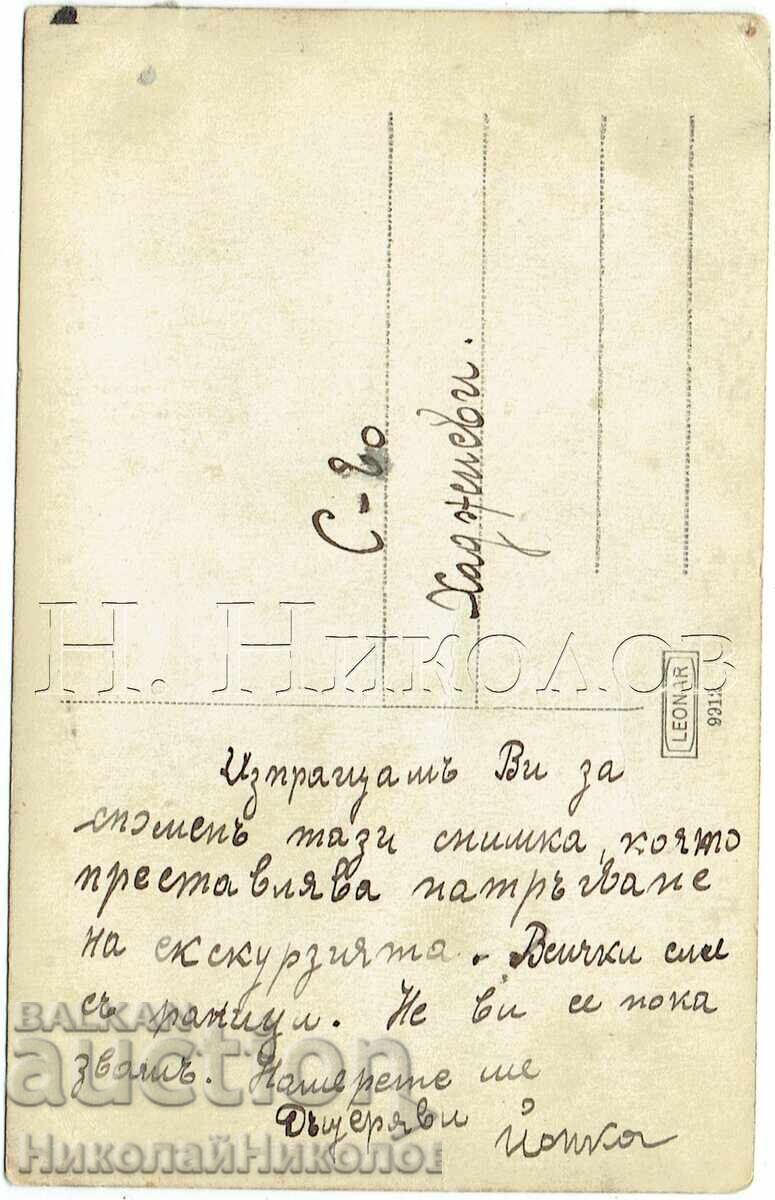 С-во
Хаджиеви.
Н. Николов
LEONAR
9912
Изпращамъ Ви за
споменъ тази снимка, която
преставлява патръгване
на екскурзията. Всички сме
съ раници. Не ви се пока
звамъ. Намерете ме
Дъщеря ви Йонка
BALKAN
auction
НиколайНиколов